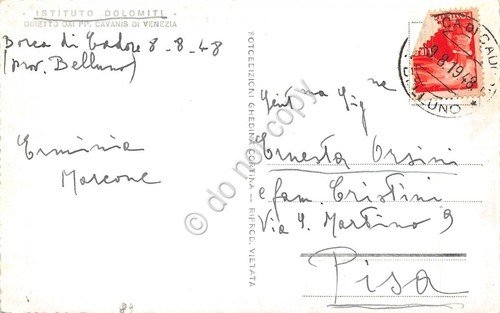 ISTITUTO DOLOMITI
DIRETTO DAI PP. CAVANIS DI VENEZIA
Borca di Cadore 8-8-48
(prov. Belluno)
Erminia
Marcone
84
FOTOEDIZIONI GHEDINA CORTINA — RIPROD. VIETATA
8.1948
Gent ma Sig ne
Ernesta Orsini
e fam. Cristini
Via S. Martino 9
Pisa
© do not copy